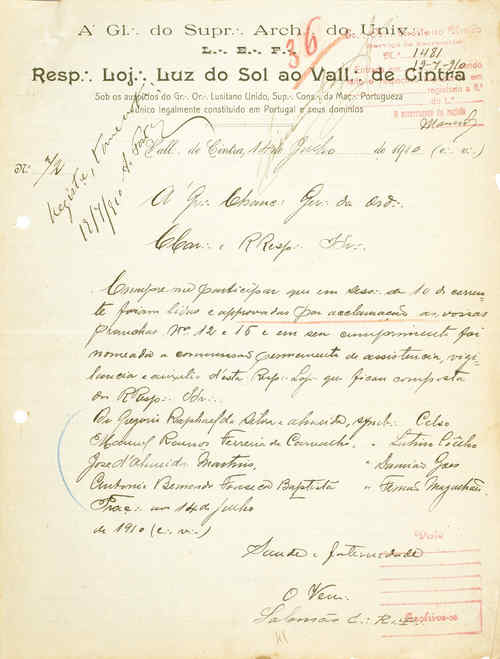 A' Gl∴ do Supr∴ Arch∴ do Univ∴
L∴ E∴ F∴
Resp∴ Loj∴ Luz do Sol ao Vall∴ de Cintra
Sob os auspicios do Gr∴ Or∴ Lusitano Unido, Sup∴ Cons∴ da Maç∴ Portugueza
unico legalmente constituido em Portugal e seus dominios
36
1481
19-7-910
N∴ 72
Vall∴ de Cintra, 14 de Julho de 1910 (e∴ v∴)
12/7/910
A' Gr∴ Chanc∴ Ger∴ da Ord∴
CCar∴ e RResp∴ Ir∴
Cumpre me participar que em sess∴ de 10 do corren-
te foram lidas e approvadas por acclamação as vossas
pranchas Nº 12 e 15 e em seu cumprimento foi
nomeada a commissão permanente de assistencia, vigi-
lancia e auxilio d'esta Resp∴ Loj∴ que ficou composta
dos RResp∴ Ir∴
Dr Gregorio Raphael da Silva e Almeida, symb∴ Celso
Manuel Ferreira de Carvalho, " Latino Coelho
José d'Almeida Martins, " Damião Goes
Antonio Bernardo Fonseca Baptista " Fernão Magalhães
Trac∴ aos 14 de Julho
de 1910 (e∴ v∴)
Saude e fraternidade
O Ven∴
Salomão
Visto
Archive-se